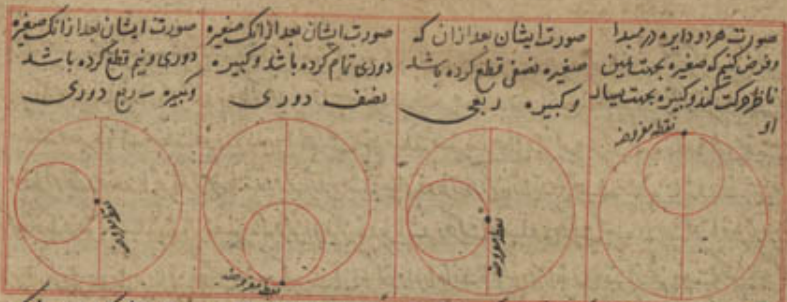 صورت هر دو دایره در مبدا
و فرض کنیم که صغیره بجهت یمین
ناظر حرکت کند و کبیره بجهت یسار
او
نقطه مفروضه
صورت ایشان بعد از ان که
صغیره نصفی قطع کرده باشد
و کبیره ربعی
نقطه مفروضه
صورت ایشان بعد از انک صغیره
دوری تمام کرده باشد و کبیره
نصف دوری
نقطه مفروضه
صورت ایشان بعد از انک صغیره
دوری و نیم قطع کرده باشد
و کبیره سه ربع دوری
نقطه مفروضه